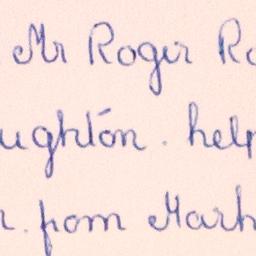 Mr Roger Ro
ughton. help
r. from Mark